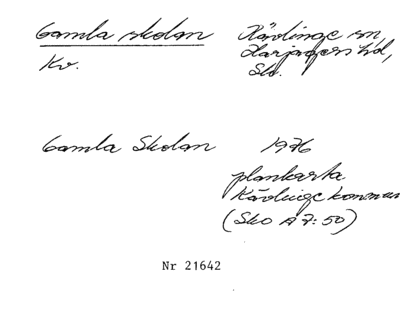 Gamla skolan Kävlinge sn,
Harjagers hd,
Kv. Sko.
Gamla Skolan 1976
plankarta
Kävlinge kommun
(Sko A 7:50)
Nr 21642